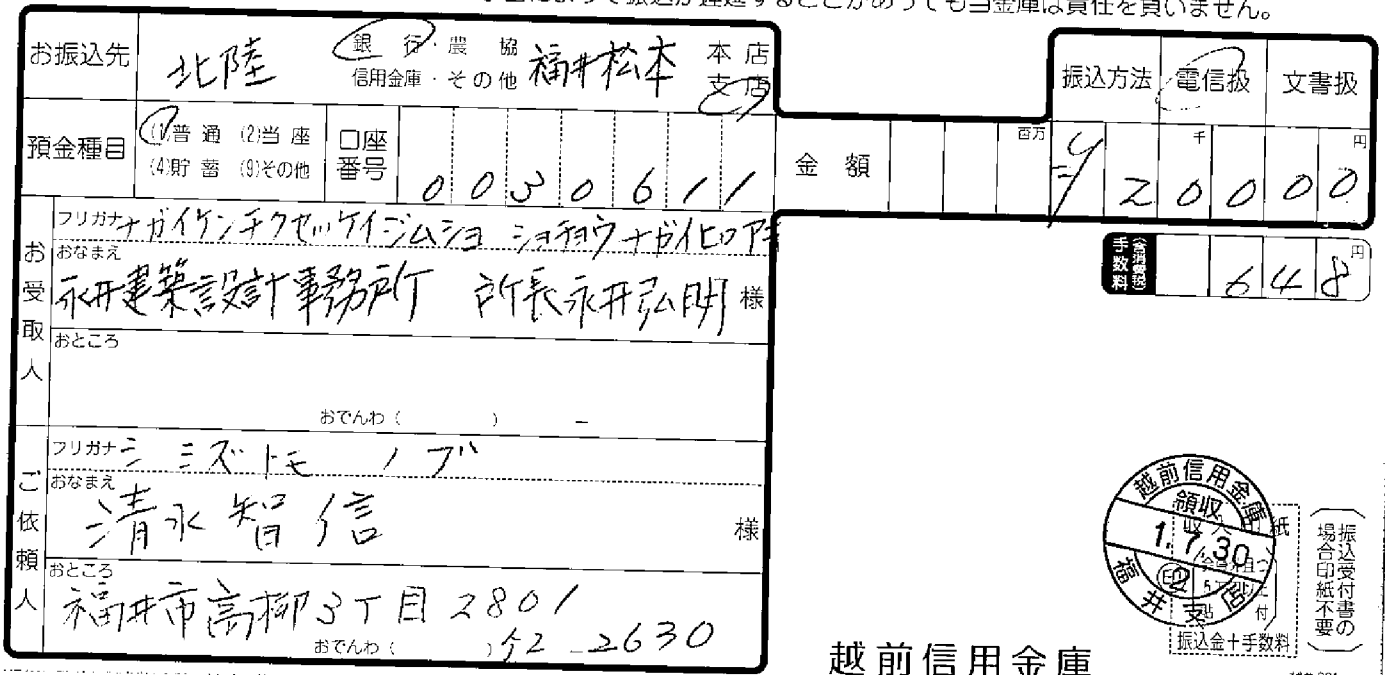 手出によって振込が遅延することがあっても当金庫は責任を負いません。
お振込先 北陸 銀行・農協 信用金庫・その他 福井松本 本店 支店
振込方法 電信扱 文書扱
預金種目 (1)普通 (2)当座 (4)貯蓄 (9)その他 口座番号 0030611
金額 百万 千 円 ¥20000
手数料 (含消費税) 円 648
お受取人
フリガナ ナガイケンチクセッケイジムショ ショチョウ ナガイヒロアキ
おなまえ 永井建築設計事務所 所長永井弘明 様
おところ
おでんわ ( ) -
ご依頼人
フリガナ シミズトモノブ
おなまえ 清水智信 様
おところ 福井市高柳3丁目2801
おでんわ ( ) 52-2630
越前信用金庫
領収
1.7.30
印 2
福井支店
振込金+手数料
(振込受付書の場合印紙不要)
越前信用金庫